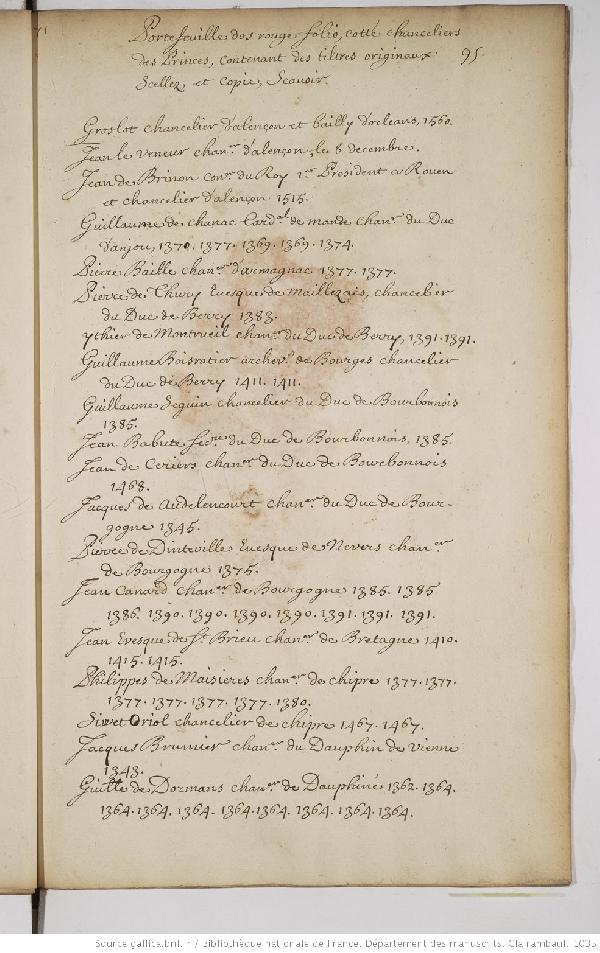 Portefeuille dos rouge folio, cotté chanceliers
des Princes, contenant des tiltres originaux 95.
Scellez et Copies, Scavoir.
Groslot chancelier d'alençon et bailly d'orleans, 1550.
Jean le Veneur chan.er d'alençon, le 8 decembre.
Jean de Brinon con.er du Roy 1.er President a Rouen
et chancelier d'alençon 1515.
Guillaume de chanac Card.al de mande chan.er du Duc
d'anjou, 1370. 1377. 1369. 1369. 1374.
Pierre Baille chan.er d'armagnac 1377. 1377.
Pierre de Thury Evesque de Maillezais, chancelier
du Duc de Berry 1383.
ythier de Montrueil chan.er du Duc de Berry, 1391. 1391.
Guillaume Boisratier archev.e de Bourges chancelier
du Duc de Berry 1411. 1411.
Guillaume Seguin chancelier du Duc de Bourbonnois
1385.
Jean Babute du Duc de Bourbonnois, 1385.
Jean de Ceriers chan.er du Duc de Bourbonnois
1468.
Jacques de Audelencourt chan.er du Duc de Bour-
gogne 1345.
Pierre de Dinteville Evesque de Nevers chan.er
de Bourgogne 1375.
Jean Canard chan.er de Bourgogne 1385. 1385
1386. 1390. 1390. 1390. 1390. 1391. 1391. 1391.
Jean Evesque de S.t Brieu chan.er de Bretagne 1410.
1415. 1415.
Philippes de Maisieres chan.er de chipre 1377. 1377.
1377. 1377. 1377. 1377. 1380.
Oriol chancelier de chipre 1467. 1467.
Jacques Brunier chan.er du Dauphin de Vienne
1343.
Guille de Dormans chan.er de Dauphiné 1362. 1364.
1364. 1364. 1364. 1364. 1364. 1364. 1364. 1364.
Source gallica.bnf.fr / Bibliothèque nationale de France. Département des manuscrits. Clairambault 1035